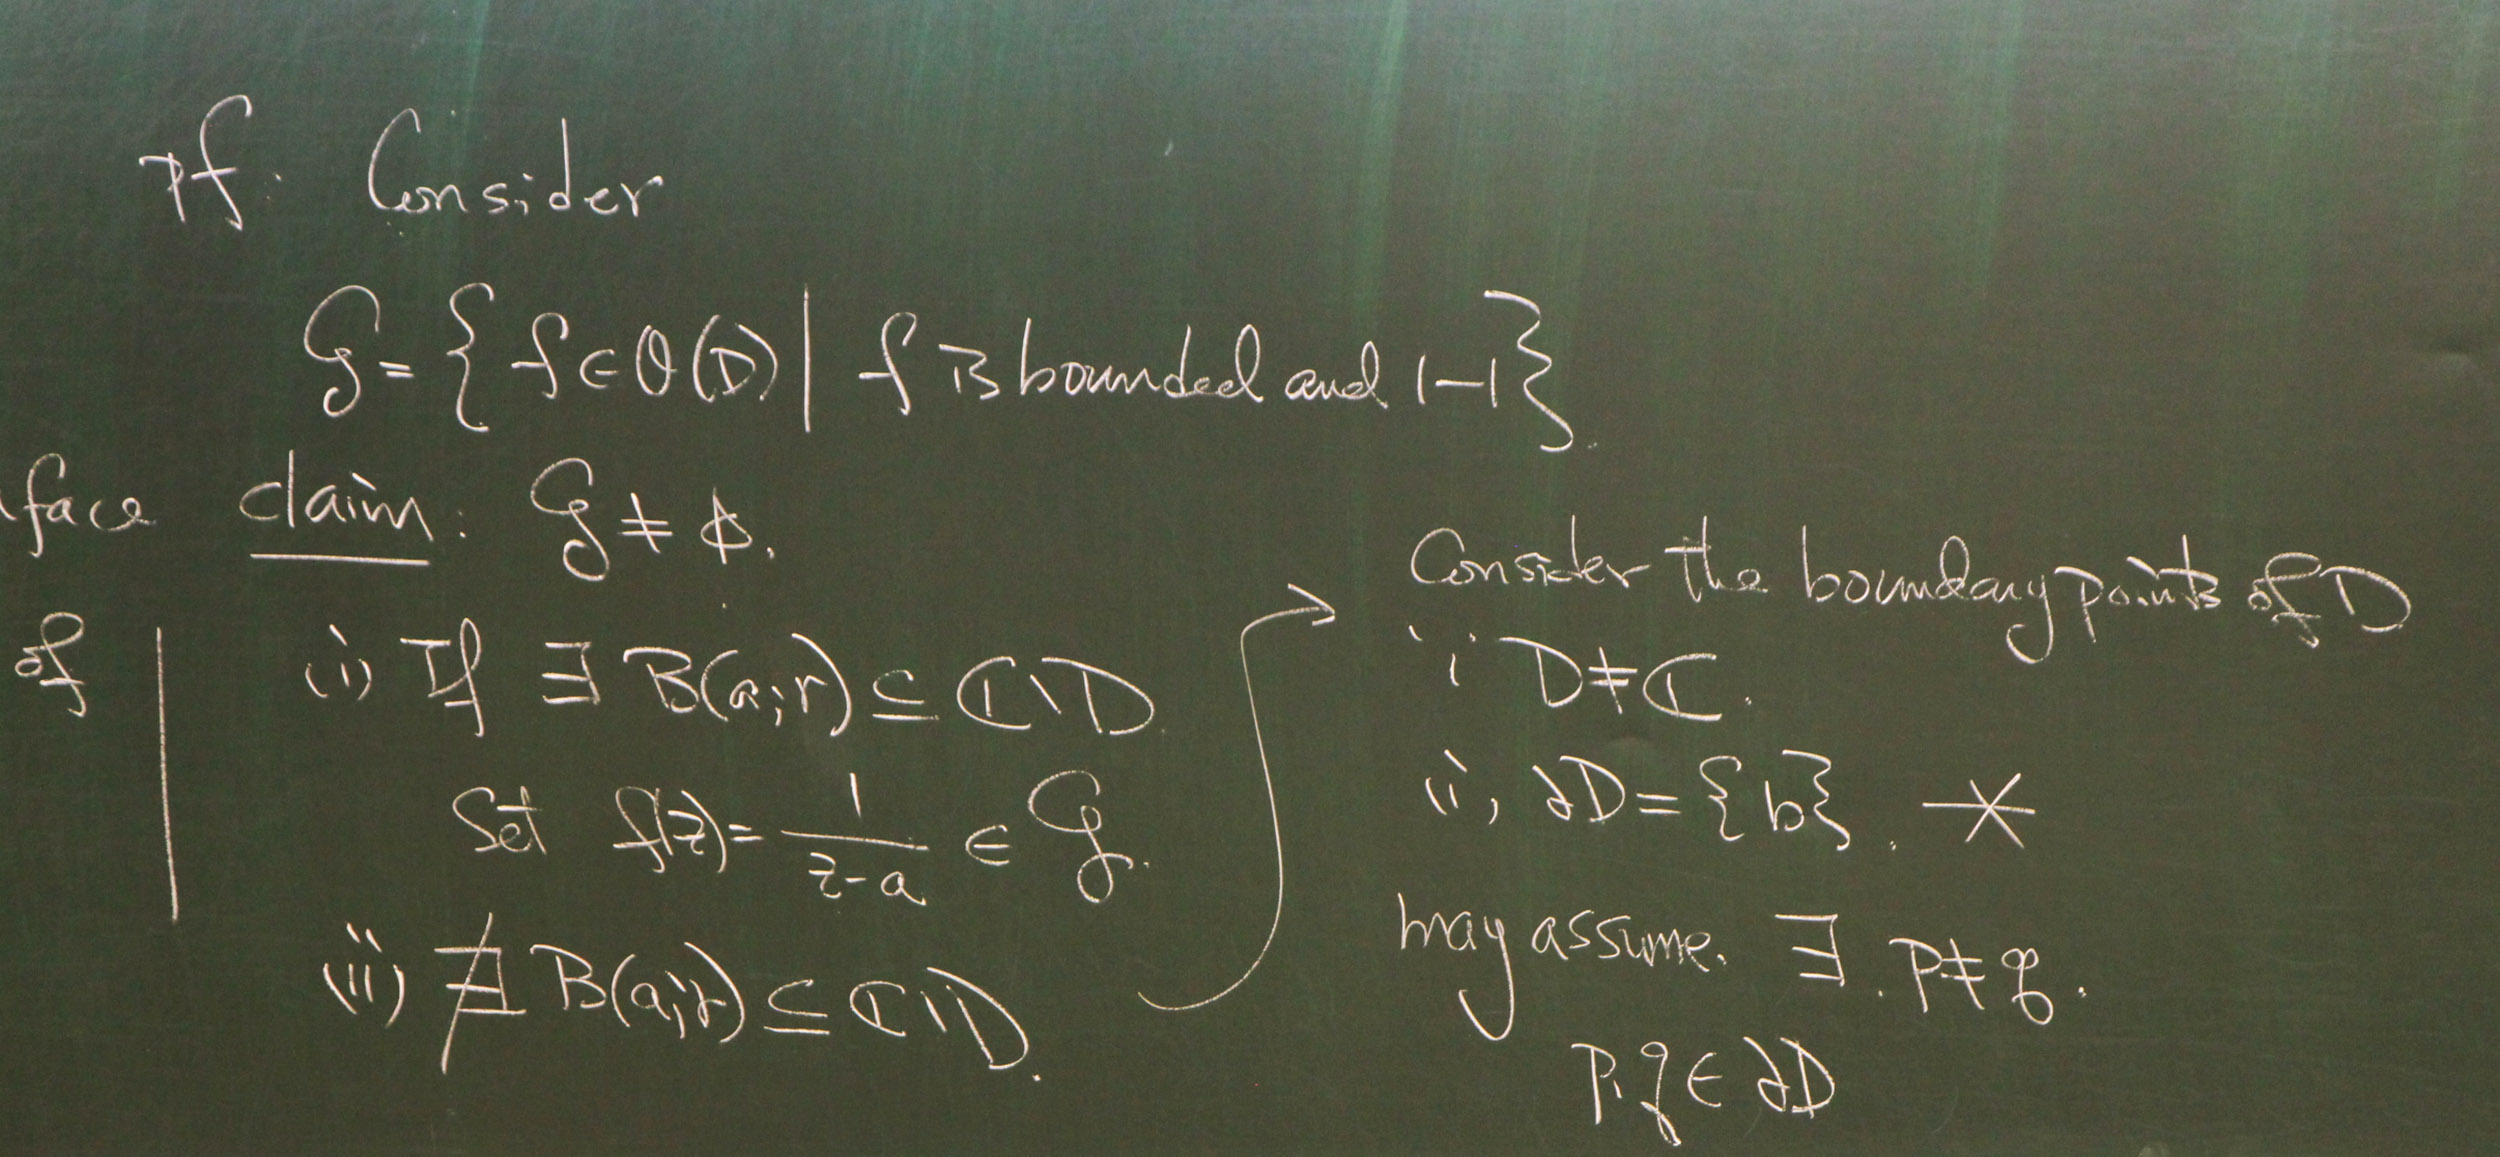 pf: Consider
G = { f ∈ O(D) | f is bounded and 1-1 }.
face claim: G ≠ ∅.
of
(i) If ∃ B(a;r) ⊆ ℂ\D
Set f(z) = 1/(z-a) ∈ G.
(ii) ∄ B(a;r) ⊆ ℂ\D.
Consider the boundary points of D
i, D ≠ ℂ.
ii, ∂D = {b}. ⁎
may assume. ∃. p ≠ q.
p, q ∈ ∂D